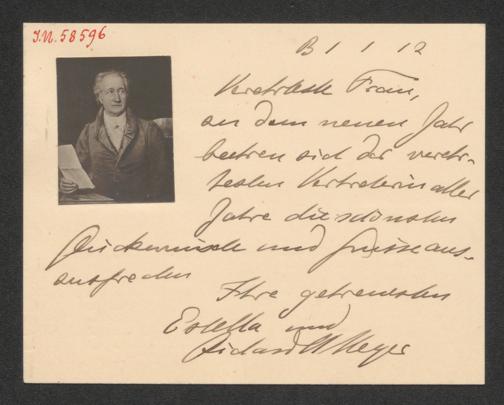 I.N. 58596
B 1 1 12
Verehrteste Frau,
an dem neuen Jahr
beehren sich der verehr-
testen Vertreterin aller
Jahre die schönsten
Glückwünsche und Grüsse aus-
ausprechen
Ihre getreuesten
Estella und
Richard M Meyer